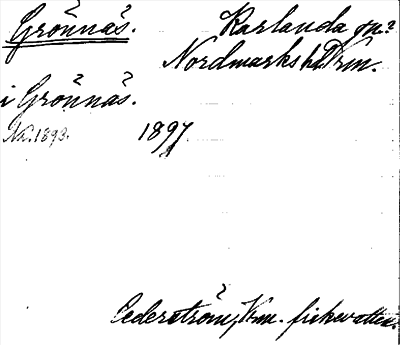 Grönnäs. Karlanda sn?
Nordmarks hd Vrm.
i Grönnäs.
Na. 1893. 1897
Cederström, Vrm. fiskevatten.